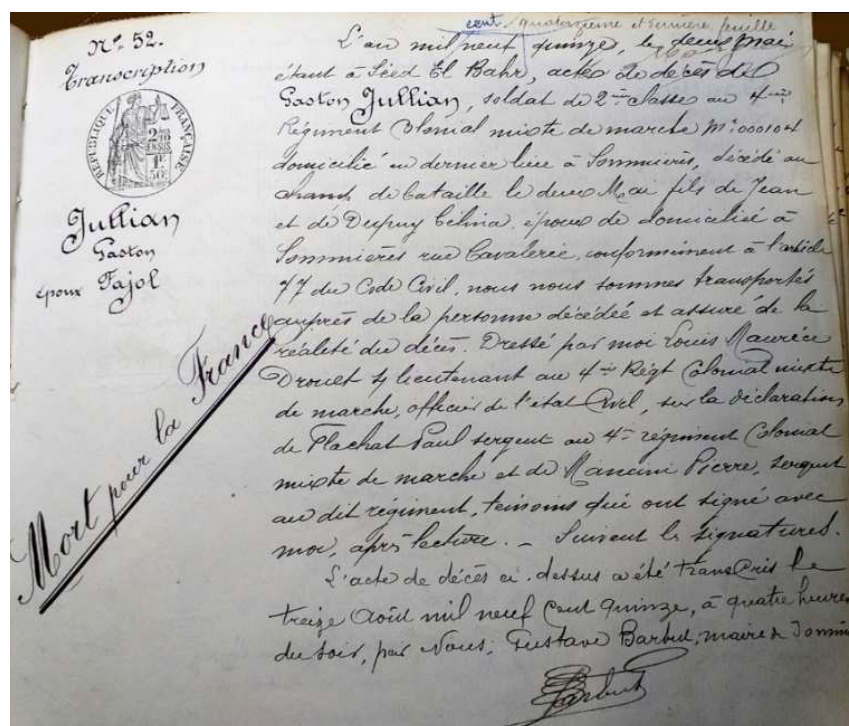 cent quatorzième et dernière feuille
Nº 52.
Transcription
RÉPUBLIQUE FRANÇAISE
2/10 EN SUS
1F 50c
Jullian
Gaston
époux Fajol
Mort pour la France
L'an mil neuf quinze, le deux Mai
étant à Sèed El Bahr, acte de décès de
Gaston Jullian, soldat de 2ème classe au 4ème
Régiment Colonial mixte de marche Mle 000104
domicilié en dernier lieu à Sommières, décédé au
champ de bataille le deux Mai fils de Jean
et de Dupuy Célina, époux de domicilié à
Sommières rue Cavalerie, conformément à l'article
77 du Code Civil, nous nous sommes transportés
auprès de la personne décédée et assuré de la
réalité du décès. Dressé par moi Louis Maurice
Drouet S/ lieutenant au 4ème Régt Colonial mixte
de marche, officier de l'état Civil, sur la déclaration
de Flachat Paul sergent au 4e régiment Colonial
mixte de marche et de Mancini Pierre, sergent
au dit régiment, témoins qui ont signé avec
moi, après lecture. – Suivent les signatures.
L'acte de décès ci-dessus a été transcris le
treize Août mil neuf Cent quinze, à quatre heures
du soir, par Nous, Gustave Barbut, maire de Sommi
Barbut